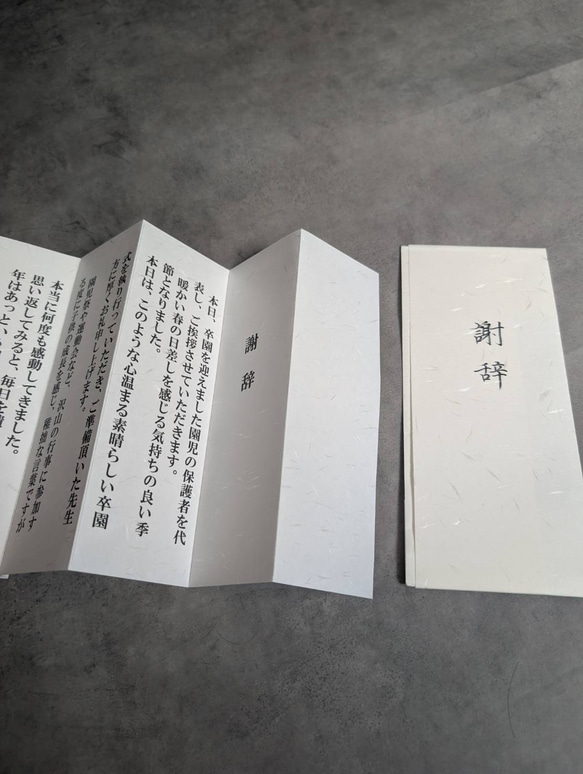 謝辞
謝辞
本日、卒園を迎えました園児の保護者を代
表し、ご挨拶させていただきます。
暖かい春の日差しを感じる気持ちの良い季
節となりました。
本日は、このような心温まる素晴らしい卒園
式を執り行っていただき、ご準備頂いた先生
方に厚くお礼申し上げます。
運動会など、沢山の行事に参加す
る度に子供の成長を感じ、稚拙な言葉ですが
本当に何度も感動してきました。
思い返してみると、毎日を
年はあっとい